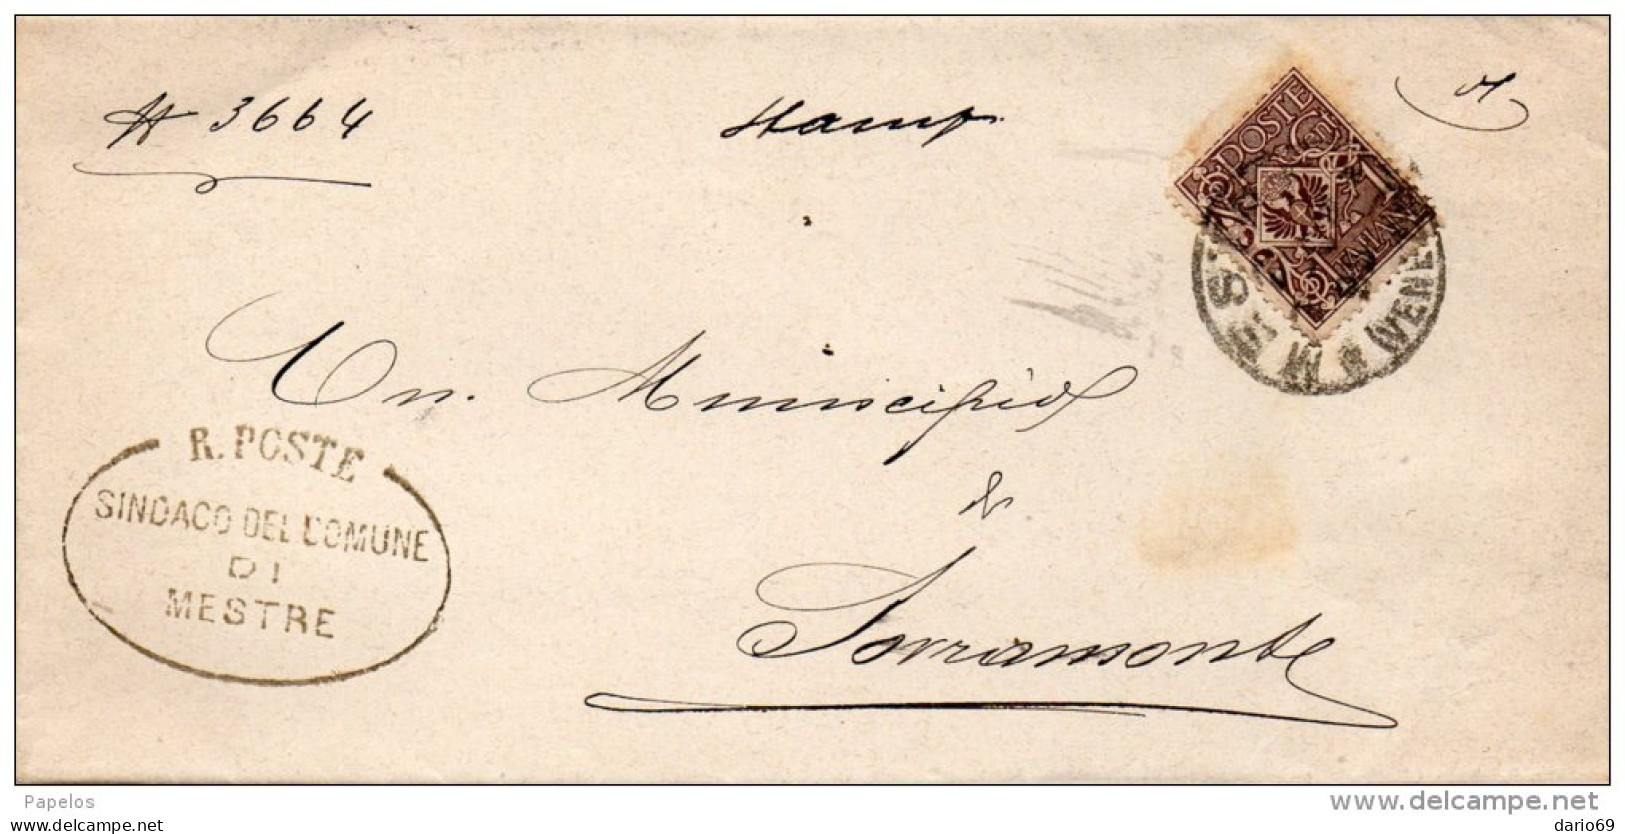 N 3664
Stamp.
POSTE
ITALIANE
MESTRE (VENE
On. Municipio
di
Sovramonte
R. POSTE
SINDACO DEL COMUNE
DI
MESTRE
Papelos
www.delcampe.net
delcampe.net
dario69